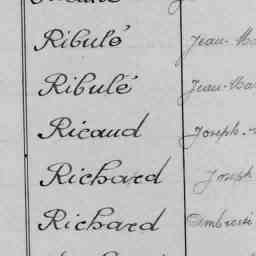 Ribulé Jean-Ma
Ribulé Jean-Ma
Ricaud Joseph-
Richard Joseph
Richard